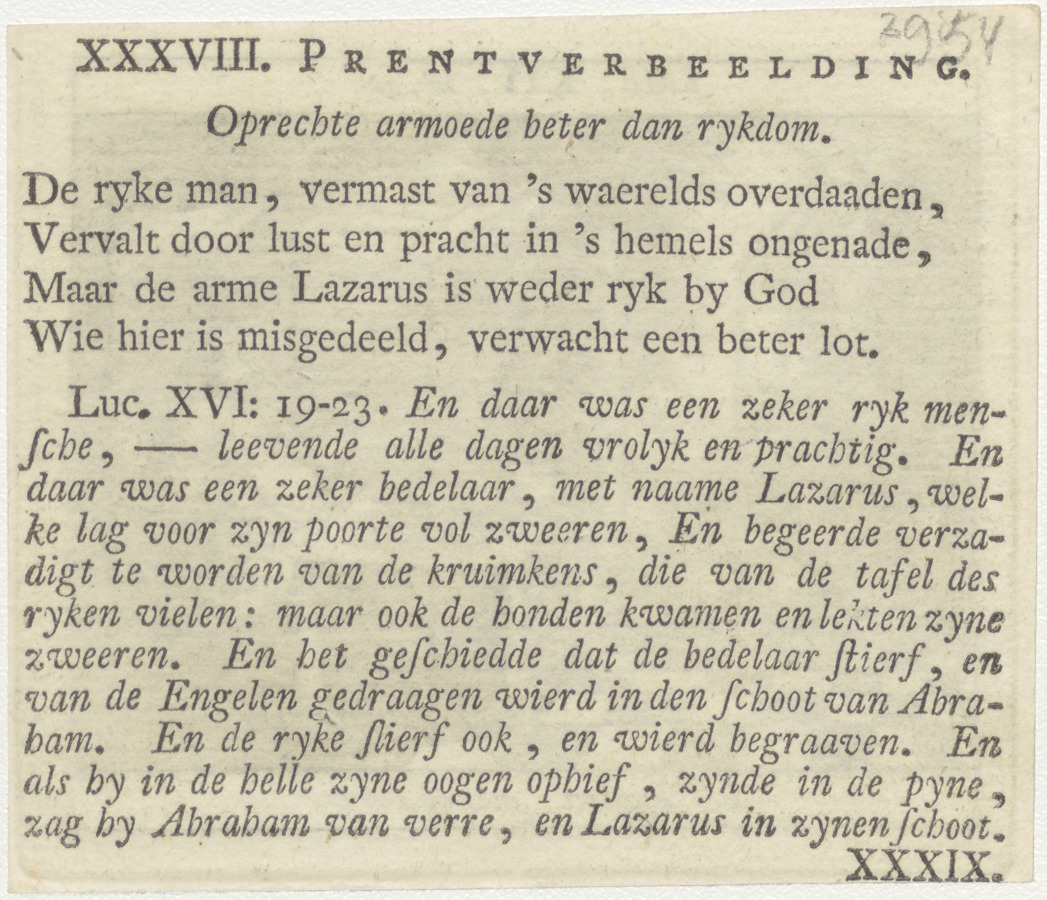 2954
XXXVIII. PRENTVERBEELDING.
Oprechte armoede beter dan rykdom.
De ryke man, vermast van 's waerelds overdaaden,
Vervalt door lust en pracht in 's hemels ongenade,
Maar de arme Lazarus is weder ryk by God
Wie hier is misgedeeld, verwacht een beter lot.
Luc. XVI: 19-23. En daar was een zeker ryk men-
ſche, — leevende alle dagen vrolyk en prachtig. En
daar was een zeker bedelaar, met naame Lazarus, wel-
ke lag voor zyn poorte vol zweeren, En begeerde verza-
digt te worden van de kruimkens, die van de tafel des
ryken vielen: maar ook de honden kwamen en lekten zyne
zweeren. En het geſchiedde dat de bedelaar ſtierf, en
van de Engelen gedraagen wierd in den ſchoot van Abra-
ham. En de ryke ſtierf ook, en wierd begraaven. En
als hy in de helle zyne oogen ophief, zynde in de pyne,
zag hy Abraham van verre, en Lazarus in zynen ſchoot.
XXXIX.